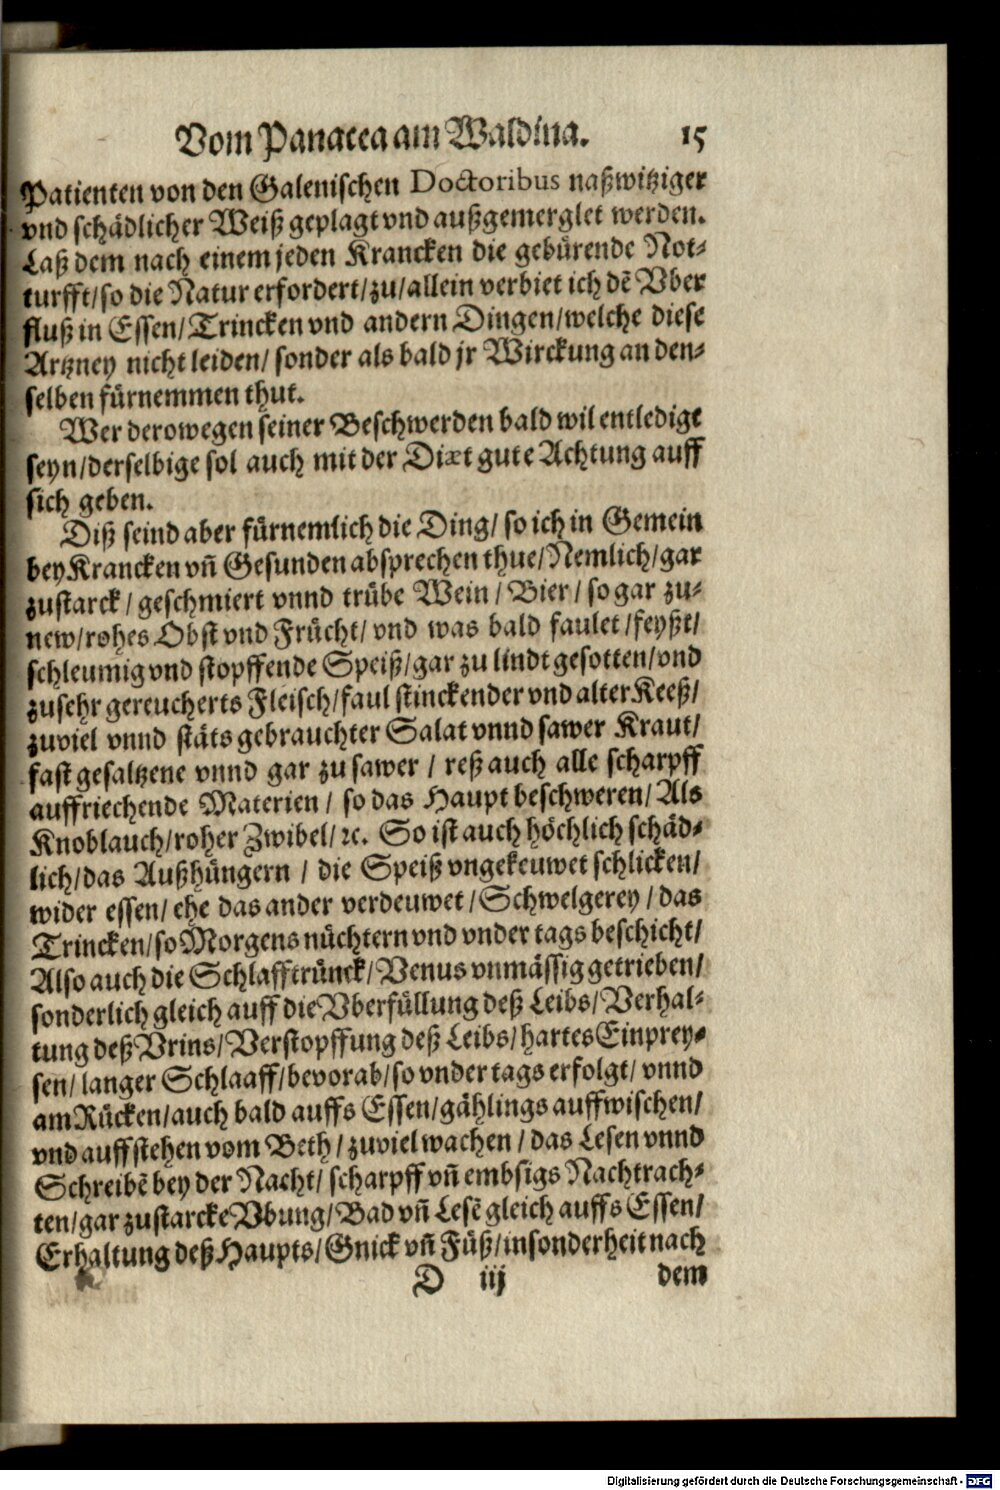 Vom Panacea am Waldina. 15
Patienten von den Galenischen Doctoribus naßwitziger
vnd schädlicher Weiß geplagt vnd außgemerglet werden.
Laß dem nach einem jeden Krancken die gebürende Not-
turfft/so die Natur erfordert/zu/allein verbiet ich dē Vber
fluß in Essen/Trincken vnd andern Dingen/welche diese
Artzney nicht leiden/ sonder als bald jr Wirckung an den-
selben fürnemmen thut.
Wer derowegen seiner Beschwerden bald wil entledigt
seyn/derselbige sol auch mit der Diæt gute Achtung auff
sich geben.
Diß seind aber fürnemlich die Ding/ so ich in Gemein
bey Krancken vñ Gesunden absprechen thue/Nemlich/gar
zustarck/ geschmiert vnnd trübe Wein/ Bier/ so gar zu-
new/rohes Obst vnd Frücht/ vnd was bald faulet/feyßt/
schleumig vnd stopffende Speiß/gar zu lindt gesotten/vnd
zusehr gereucherts Fleisch/faul stinckender vnd alter Keeß/
zuviel vnnd stäts gebrauchter Salat vnnd sawer Kraut/
fast gesaltzene vnnd gar zu sawer / reß auch alle scharpff
auffriechende Materien/ so das Haupt beschweren/ Als
Knoblauch/roher Zwibel/ꝛc. So ist auch höchlich schäd-
lich/das Außhüngern / die Speiß vngekeuwet schlicken/
wider essen/ ehe das ander verdeuwet/ Schwelgerey / das
Trincken/so Morgens nüchtern vnd vnder tags beschicht/
Also auch die Schlafftrünck/ Venus vnmässig getrieben/
sonderlich gleich auff die Vberfüllung deß Leibs/ Verhal-
tung deß Vrins/ Verstopffung deß Leibs/ hartes Einprey-
sen/ langer Schlaaff/bevorab/so vnder tags erfolgt/ vnnd
am Rücken/auch bald auffs Essen/gählings auffwischen/
vnd auffstehen vom Beth/ zuviel wachen / das Lesen vnnd
Schreibē bey der Nacht/ scharpff vñ embsigs Nachtrach-
ten/gar zustarcke Vbung/ Bad vñ Lesē gleich auffs Essen/
Erhaltung deß Haupts/ Gnick vñ Füß/insonderheit nach
D iij dem
Digitalisierung gefördert durch die Deutsche Forschungsgemeinschaft - DFG